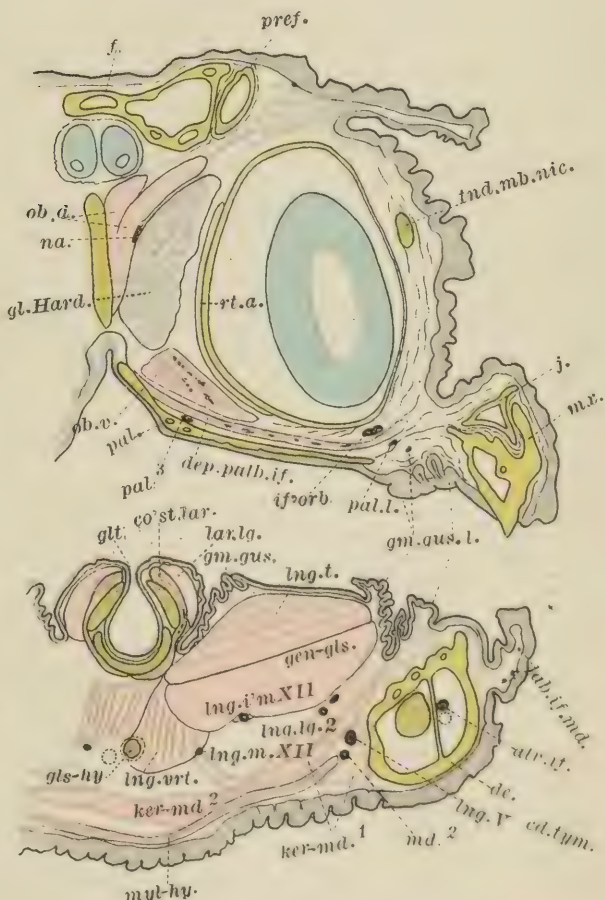 pref.
f.
tnd.mb.nic.
ob.d.
na.
gl.Hard.
rt.a.
j.
mx.
ob.v.
pal.
pal.3
dep.palb.if.
if'orb
pal.l.
gm.gus.l.
glt.
co'st.lar.
lar.lg.
gm.gus.
lng.t.
gen-gls.
lng.i'm.XII
lng.lg.2
lng.m.XII
tab.if.md.
alr.if.
gls-hy
lng.vrt.
de.
ker-md 2
lng.V
cd.tym.
ker-md.1
md.2
myl-hy.